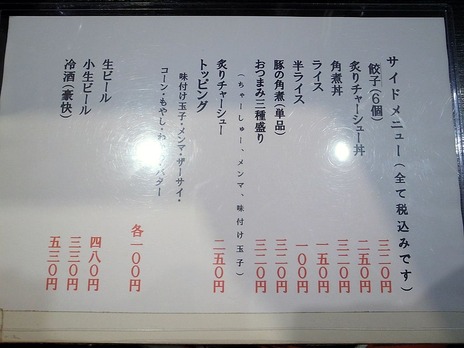 サイドメニュー(全て税込みです)
餃子(6個) 三二〇円
炙りチャーシュー丼 二五〇円
角煮丼 三二〇円
ライス 一五〇円
半ライス 一〇〇円
豚の角煮(単品) 三二〇円
おつまみ三種盛り 三二〇円
(ちゃーしゅー、メンマ、味付け玉子)
炙りチャーシュー 二五〇円
トッピング
味付け玉子・メンマ・ザーサイ・
コーン・もやし・ バター 各一〇〇円
生ビール 四八〇円
小生ビール 三三〇円
冷酒(豪快) 五三〇円